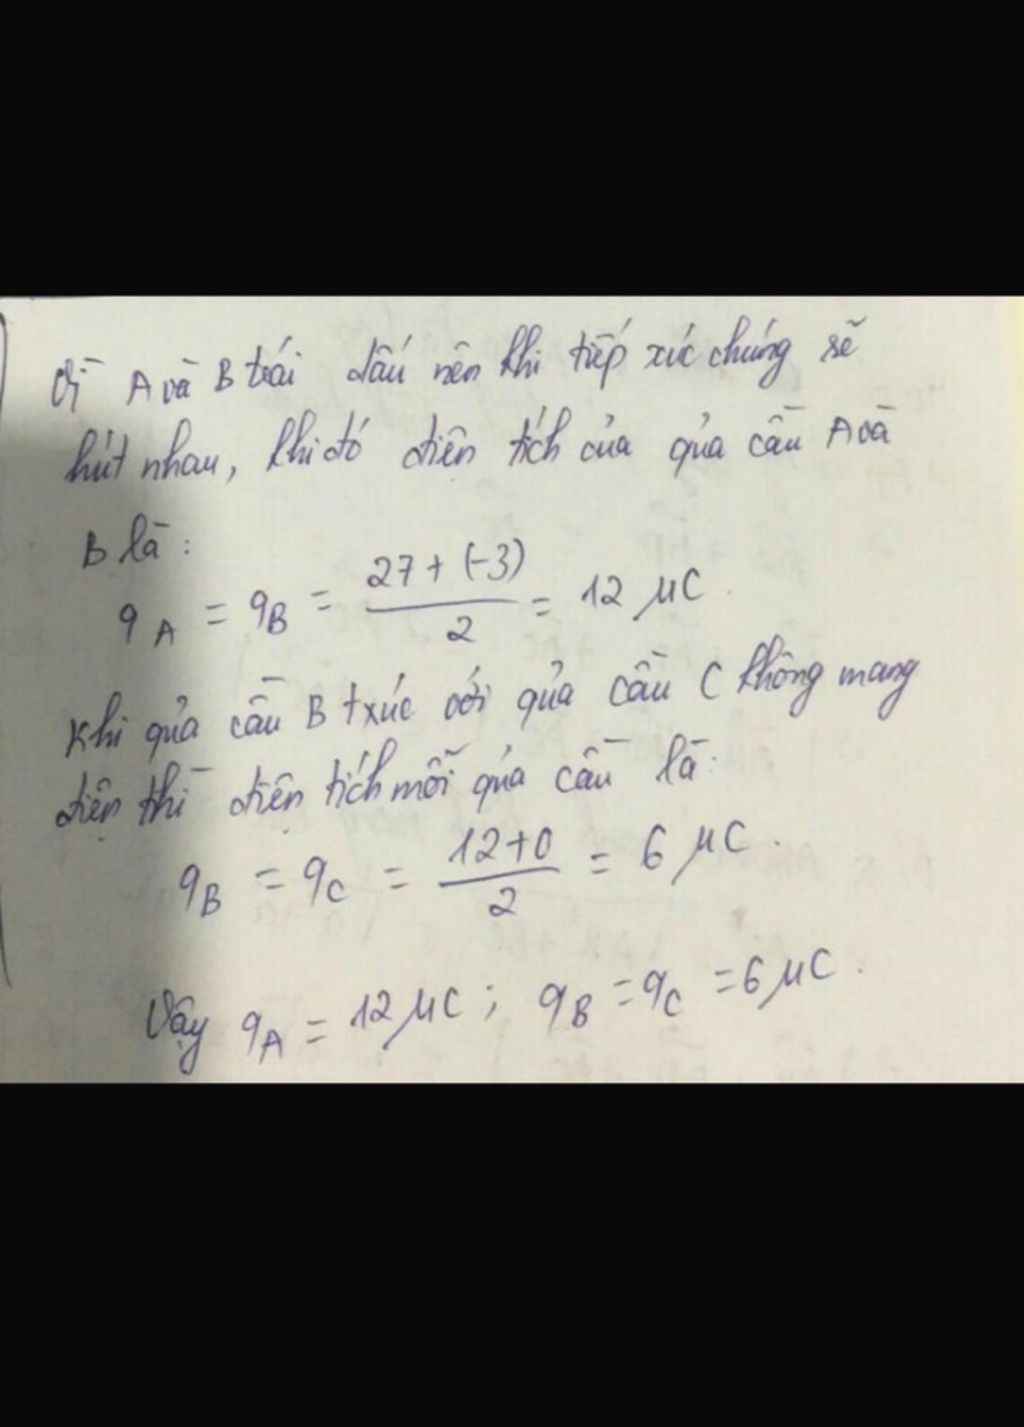 Vì A và B trái dấu nên khi tiếp xúc chúng sẽ
hút nhau, khi đó điện tích của quả cầu A và
B là:
q_A = q_B = \frac{27 + (-3)}{2} = 12 μC.
Khi quả cầu B txúc với quả cầu C không mang
điện thì điện tích mỗi quả cầu là:
q_B = q_C = \frac{12+0}{2} = 6 μC.
Vậy q_A = 12 μC; q_B = q_C = 6 μC.